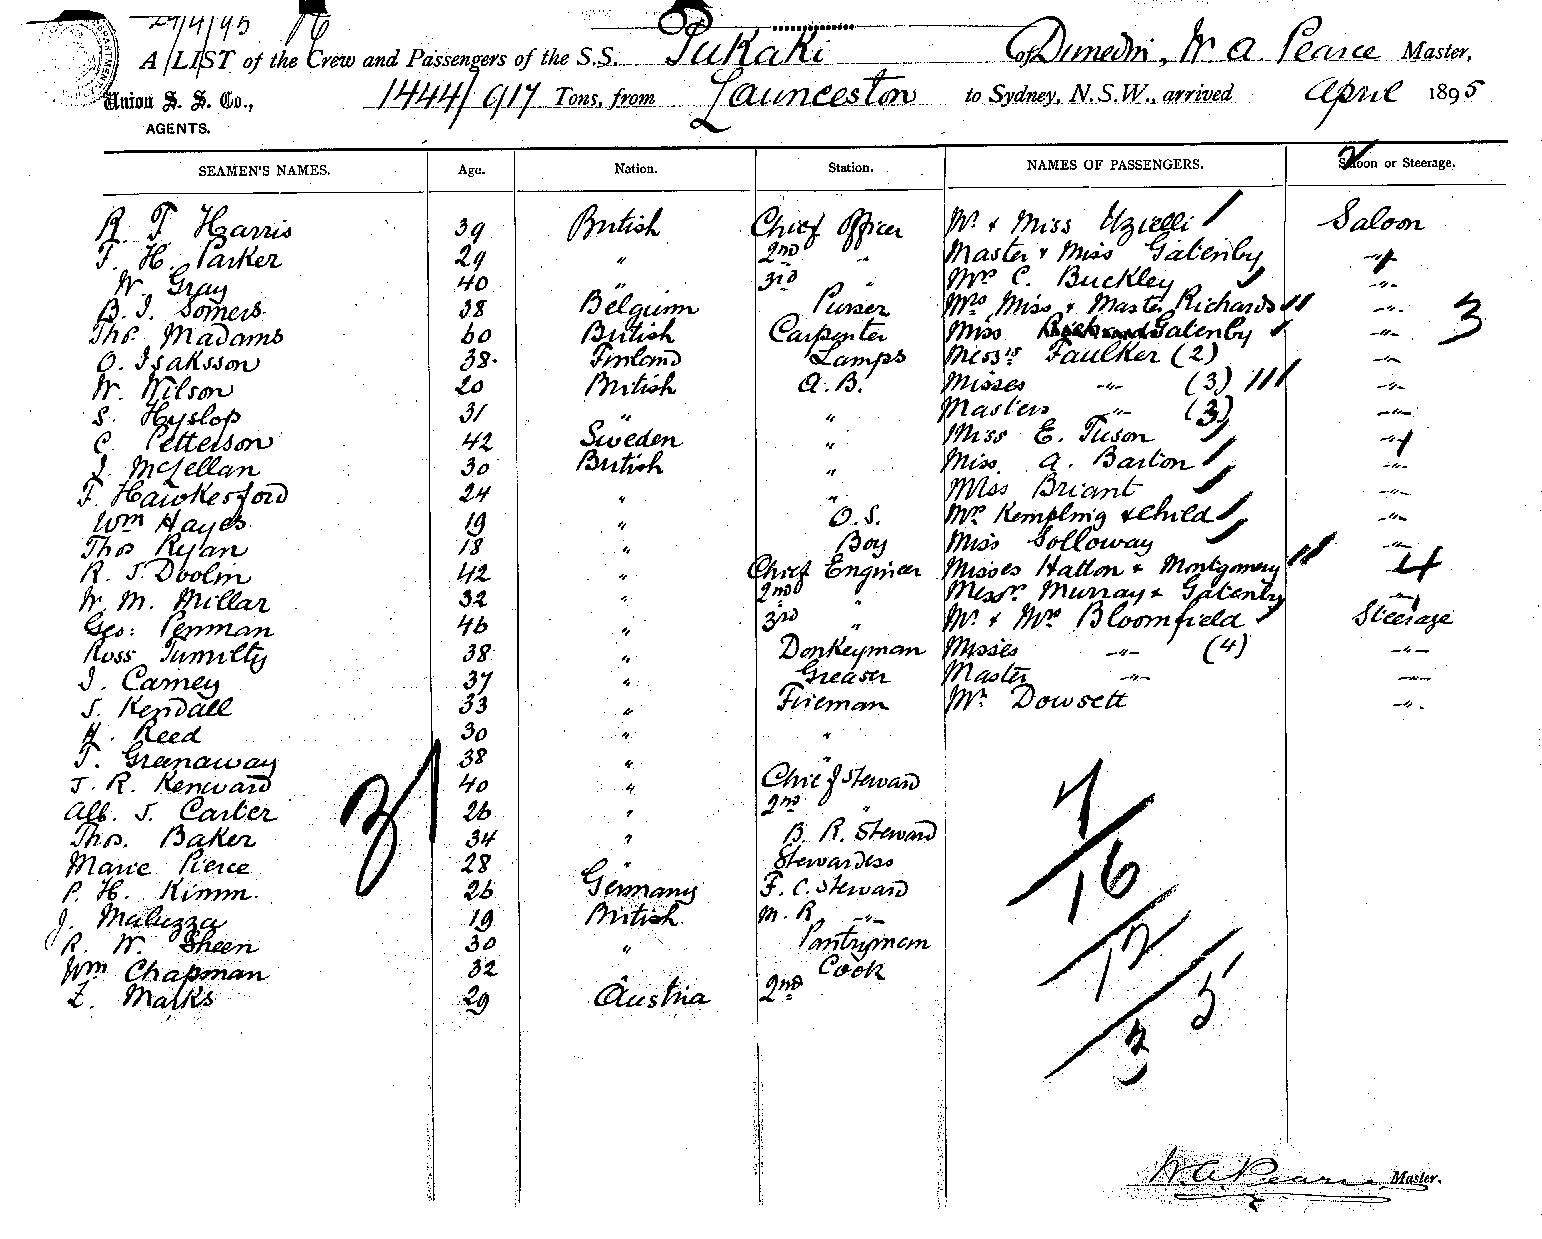 27/4/95 16
A LIST of the Crew and Passengers of the S.S. Pukaki of Dunedin, W. A. Pearce Master,
Union S. S. Co., 1444/917 Tons, from Launceston to Sydney, N.S.W., arrived April 1895
AGENTS.
SEAMEN'S NAMES. Age. Nation. Station. NAMES OF PASSENGERS. Saloon or Steerage.
R. T. Harris 39 British Chief Officer Mr. & Miss Uzielli Saloon
T. H. Parker 29 " 2nd " Master & Miss Gatenby "
W. Gray 40 " 3rd " Mrs C. Buckley "
B. J. Somers 38 Belguim Purser Mrs Miss & Master Richards "
Thos. Madams 60 British Carpenter Miss Gatenby " 3
O. Isaksson 38. Finland Lamps Messrs Faulker (2) "
W. Wilson 20 British A.B. Misses " (3) "
S. Hyslop 31 " " Masters " (3) "
C. Petterson 42 Sweden " Miss E. Tuson "
J. McLellan 30 British " Miss A. Barton "
T. Hawkesford 24 " " Miss Briant "
Wm Hayes 19 " O.S. Mrs Kempling & Child "
Thos Ryan 18 " Boy Miss Solloway "
R. J. Doolin 42 " Chief Engineer Misses Hatton & Montgomery 4
W. M. Millar 32 " 2nd " Messrs. Murray & Gatenby "
Geo: Penman 46 " 3rd " Mr. & Mrs Bloomfield Steerage
Ross Tumilty 38 " Donkeyman Misses " (4) "
J. Carney 37 " Greaser Master " "
S. Kendall 33 " Fireman Mr. Dowsett "
H. Reed 30 " "
T. Greenaway 38 " "
J. R. Kenward 40 " Chief Steward
Alb. J. Carter 26 " 2nd "
Thos. Baker 34 " B. R. Steward
Marie Pierce 28 " Stewardess
P. H. Kimm. 26 Germany F. C. Steward
J. Maluzza 19 British M. R. "
R. W. Sheen 30 " Pantryman
Wm Chapman 32 Cook
Z. Marks 29 Austria 2nd
31
7
16
12
5
3
W. A. Pearce Master.